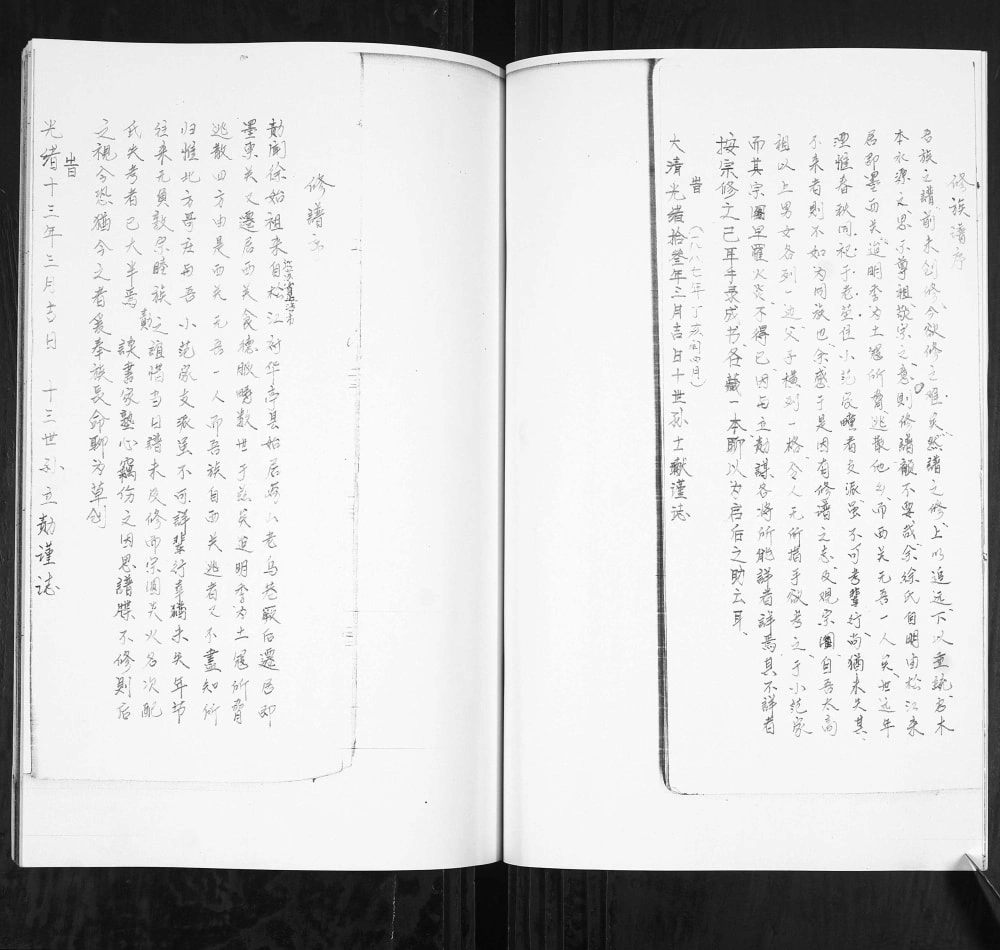 修族谱序
吾族之譜前未创修今欲修之难矣然譜之修上以追远下以垂訓为木
本水源又思尔尊祖敬宗之意则修譜顧不要哉余徐氏自明由松江来
居即墨西关迨明季为土冦所賫逃散他出而西关无吾一人矣世远年
湮惟春秋同祀于老茔但小范家疃者支派虽不可考輩行尚猶未失其
不来者则不如为同族也余感于是因有修谱之志及观宗圖自吾太高
祖以上男女各列一边父子横列一格令人无所措手欲考之于小范家
而其宗圖早罹火炎不得已因与立勋謀各将所能詳者詳焉其不詳者
按宗修之己耳手录成书各藏一本聊以为启后之助云耳
旹(一八八七年丁亥闰四月)
大清光绪拾叁年三月吉日十世孙士献謹志
修譜序
勋闻徐始祖来自松江府华亭县始居崂山老乌苍厥后遷居即
江苏省上海市
墨東关又遷居西关食德服畴数世于兹矣迨明季为土冦所脅
逃散四方由是西关无吾一人而吾族自西关逃者又不盡知所
归惟北方哥庄与吾小范家支派虽不可詳輩行幸猶未失年节
往来无負敦宗睦族之誼惜当日譜未及修而宗圖炎火名次配
氏失考者已大半焉勋读書家塾心竊伤之因思譜牒不修则后
之视今恐猶今之者爰奉族長命聊为草创
旹
光绪十三年三月吉日 十三世孙立勋谨誌